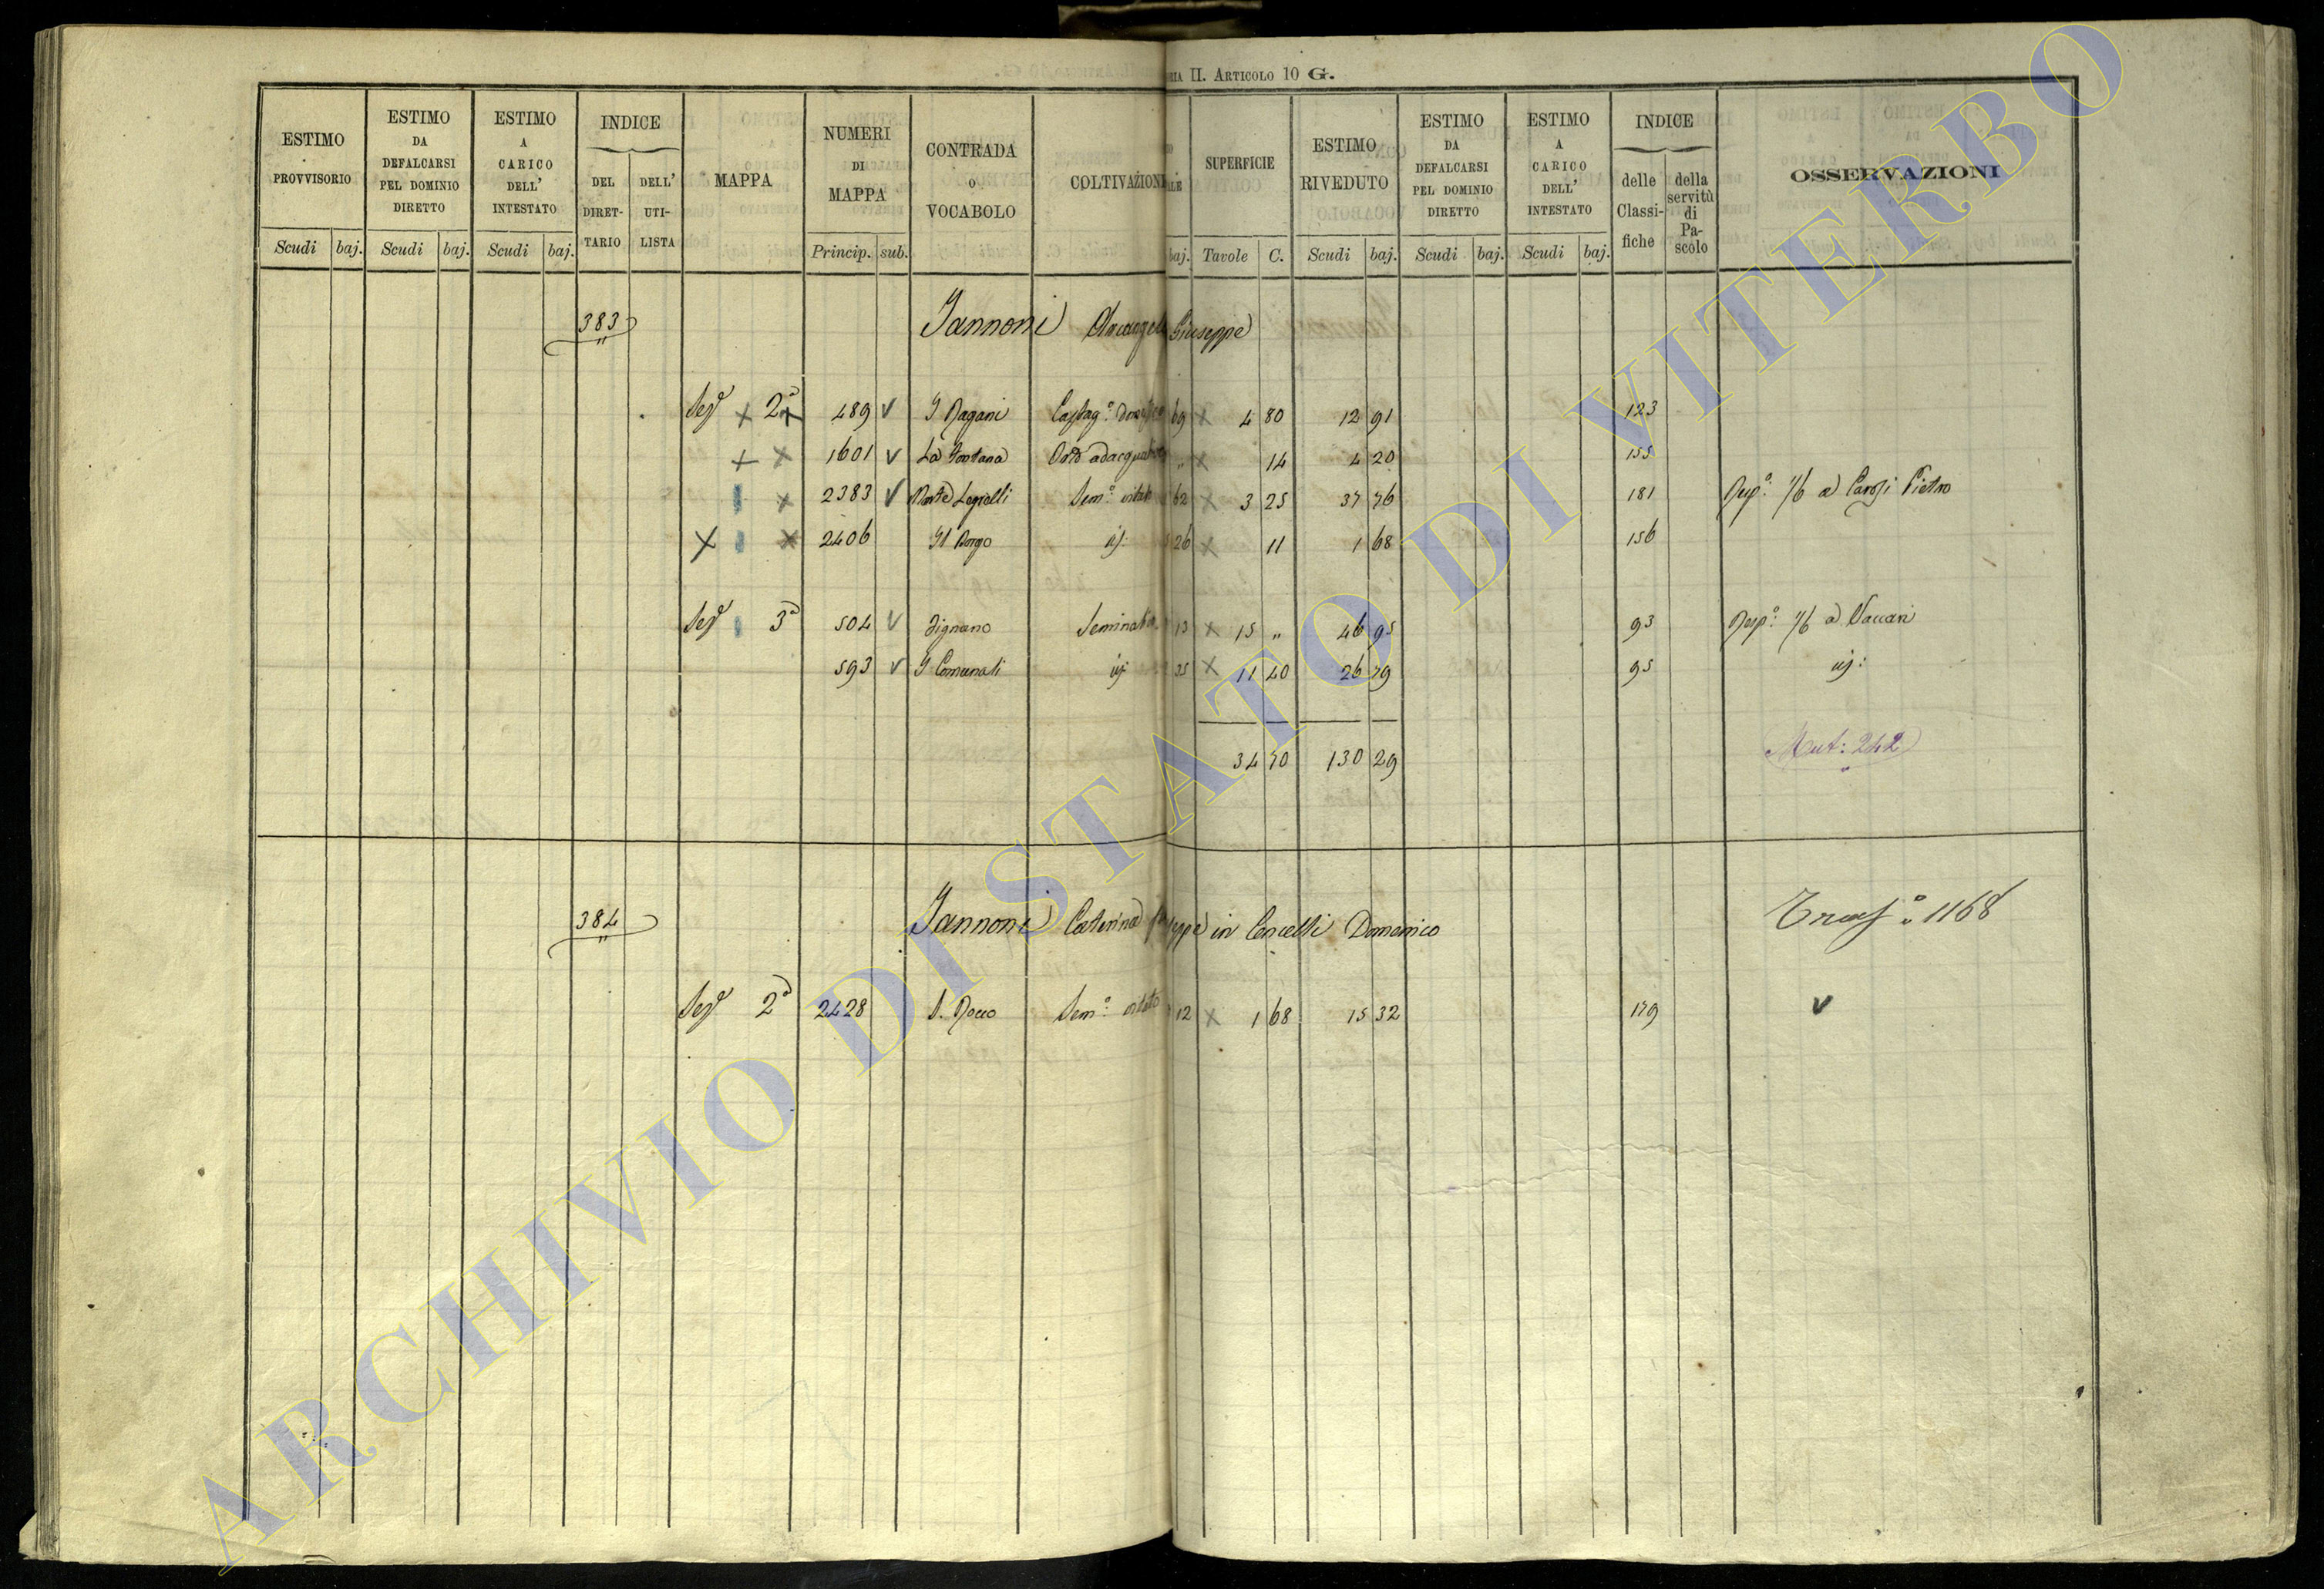 RIA II. ARTICOLO 10 G.
ESTIMO PROVVISORIO Scudi baj.
ESTIMO DA DEFALCARSI PEL DOMINIO DIRETTO Scudi baj.
ESTIMO A CARICO DELL' INTESTATO Scudi baj.
INDICE DEL DIRETTARIO DELL' UTILISTA
MAPPA
NUMERI DI MAPPA Princip. sub.
CONTRADA O VOCABOLO
COLTIVAZIONE
ALE baj.
SUPERFICIE Tavole C.
ESTIMO RIVEDUTO Scudi baj.
ESTIMO DA DEFALCARSI PEL DOMINIO DIRETTO Scudi baj.
ESTIMO A CARICO DELL' INTESTATO Scudi baj.
INDICE delle Classifiche della servitù di Pascolo
OSSERVAZIONI
383 Jannoni Arcangelo Giuseppe
Sez.e x 2a x 489 v I Pagani Castag.o 69 x 4 80 12 91 123
x x 1601 v La Fontana Orto adacquativo " x 14 4 20 155
x 2383 v 62 x 3 25 37 76 181 Risp.o 1/6 a Carosi Pietro
x x 2406 Il Borgo id: 26 x 11 1 68 156
Sez.e 3a 504 v Lignano Seminativo 13 x 15 " 46 95 93 Risp.o 1/6 a Vaccari
593 v I Comunali id: 35 x 11 40 26 79 95 id:
34 70 130 29
Mut: 242
384 Jannoni Caterina Giuseppe in Concelli Domenico
Trasp.o 1168
Sez.e 2a 2428 S. Rocco Sem.o vitato 12 x 1 68 15 32 179 v
ARCHIVIO DI STATO DI VITERBO